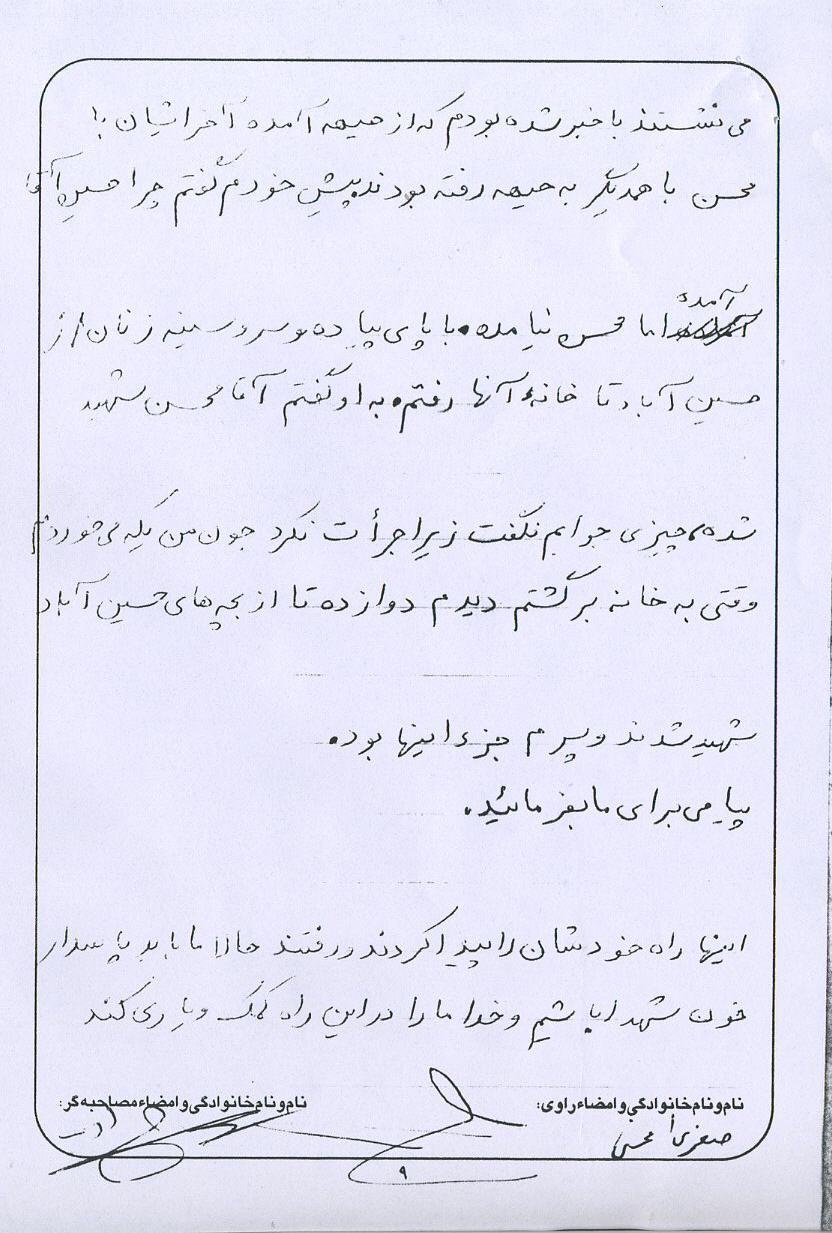 می نشستند با خبر شده بودم که از جبهه آمده آخر ایشان با
محسن با همدیگر به جبهه رفته بودند پیش خودم گفتم چرا حسین آقا
آمده
اما محسن نیامده. با پای پیاده و سر و سینه زنان از
حسین آباد تا خانهٔ آنها رفتم. به او گفتم آقا محسن شهید
شده، چیزی جوابم نگفت زیرا جرأت نکرد چون من یکه می خوردم
وقتی به خانه برگشتم دیدم دوازده تا از بچه های حسین آباد
شهید شدند و پسرم جزء اینها بود.
پیامی برای ما بفرمائید.
اینها راه خودشان را پیدا کردند و رفتند حالا ما باید پاسدار
خون شهدا باشیم و خدا ما را در این راه کمک و یاری کند
نام و نام خانوادگی و امضاء راوی:
نام و نام خانوادگی و امضاء مصاحبه گر:
صغری محسنی
۹